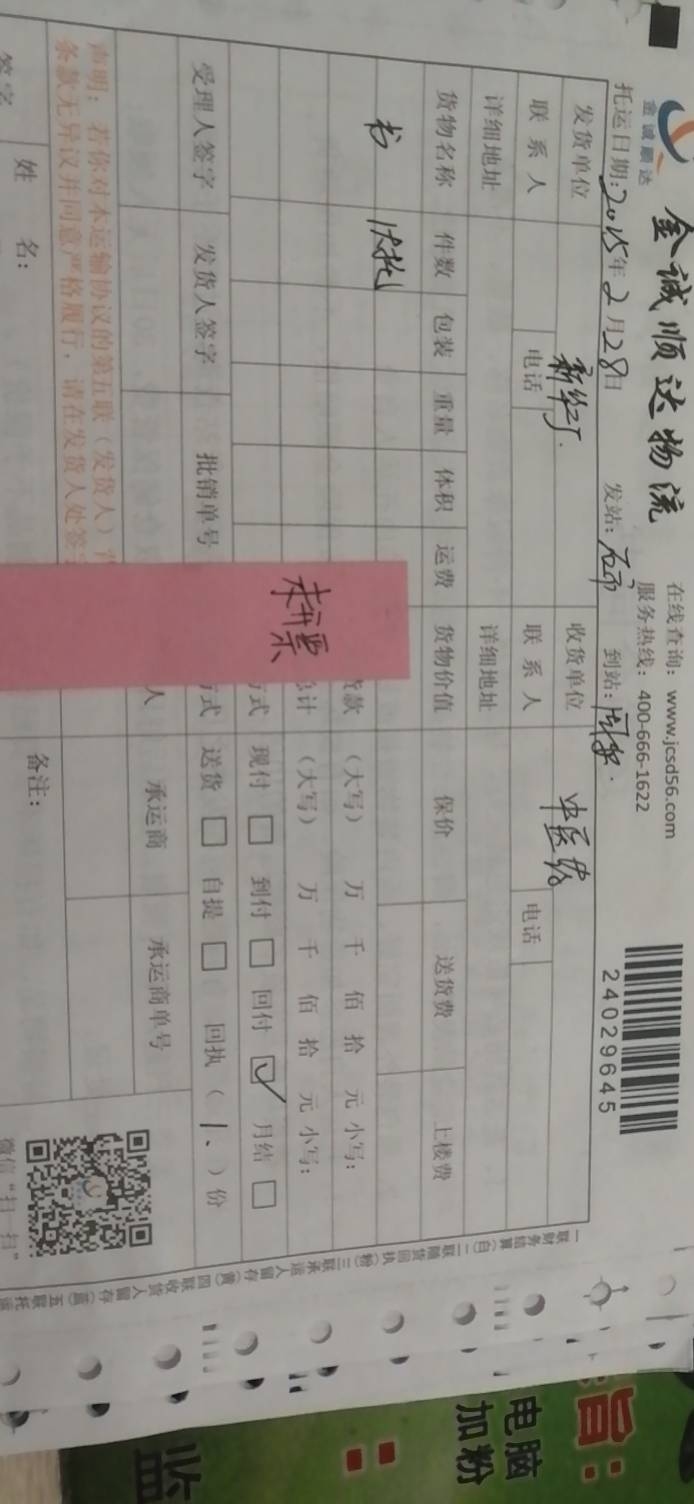 金诚顺达
金诚顺达物流
在线查询：www.jcsd56.com
服务热线：400-666-1622
24029645
托运日期：2015年2月28日 发站：石市 到站：
发货单位 新华 收货单位 中医
联系人 电话 联系人 电话
详细地址 详细地址
货物名称 件数 包装 重量 体积 运费 货物价值 保价 送货费 上楼费
书
货款 （大写） 万 千 佰 拾 元 小写：
总计 （大写） 万 千 佰 拾 元 小写：
未开票
方式 现付 □ 到付 □ 回付 ☑ 月结 □
受理人签字 发货人签字 批销单号 方式 送货 □ 自提 □ 回执（1、）份
人 承运商 承运商单号
声明：若你对本运输协议的第五联（发货人）背
条款无异议并同意严格履行，请在发货人处签
姓 名：
备注：
签字
微信“扫一扫”
一联财务结算（白）二联随货回执（粉）三联承运人留存（黄）四联收货人留存（蓝）五联托运
旨：
电脑
加粉
监